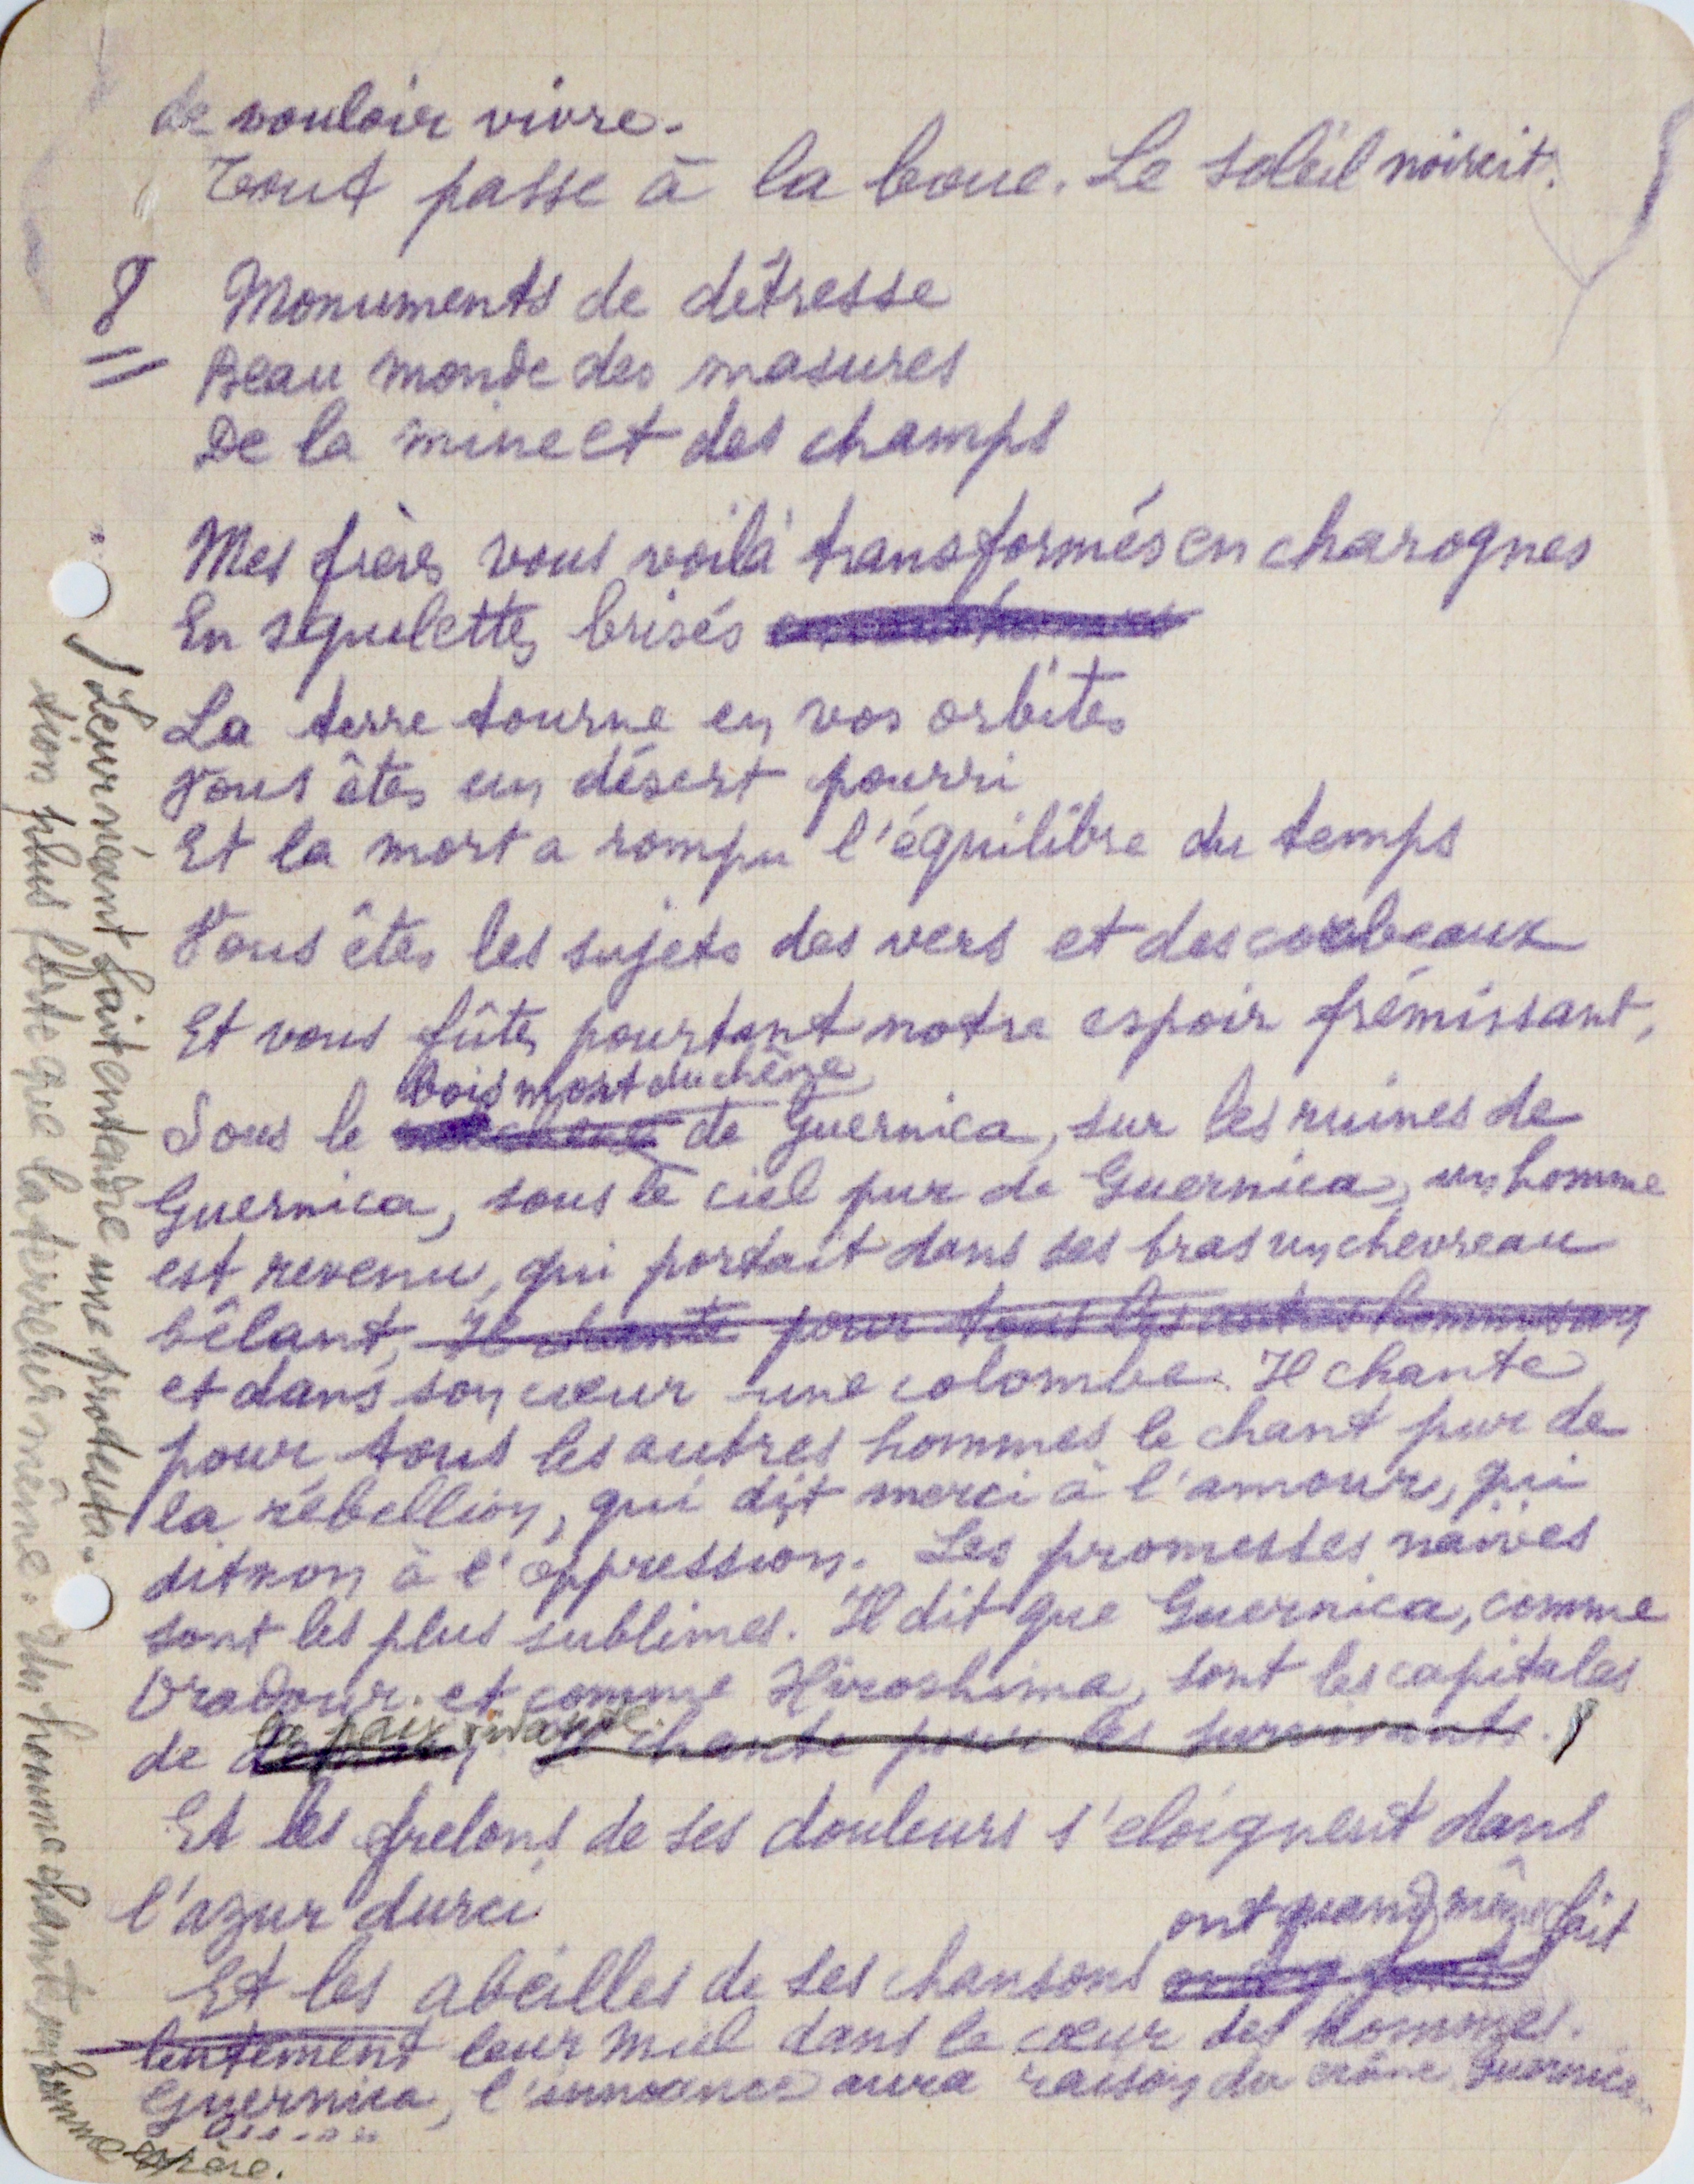 de vouloir vivre.
Tout passe à la boue. Le soleil noircit.
8 Monuments de détresse
Beau monde des masures
De la mine et des champs
Mes frères vous voilà transformés en charognes
En squelettes brisés
La terre tourne en vos orbites
Vous êtes un désert pourri
Et la mort a rompu l'équilibre du temps
Vous êtes les sujets des vers et des corbeaux
Et vous fûtes pourtant notre espoir frémissant,
bois mort du chêne
Sous le chêne de Guernica, sur les ruines de
Guernica, sous le ciel pur de Guernica, un homme
est revenu, qui portait dans ses bras un chevreau
bêlant, Il chante pour tous les autres hommes
et dans son cœur une colombe. Il chante
pour tous les autres hommes le chant pur de
la rébellion, qui dit merci à l'amour, qui
dit non à l'oppression. Les promesses naïves
sont les plus sublimes. Il dit que Guernica, comme
Oradour et comme Hiroshima, sont les capitales
la paix vivante.
de chante pour les survivants.
Et les frelons de ses douleurs s'eloignent dans
l'azur durci
ont quand même fait
Et les abeilles de ses chansons
lentement leur miel dans le cœur des hommes.
Guernica, l'innocence aura raison du crâne. Guernica..
/ Leur néant fait entendre une protesta-
tion plus forte que la terreur même. Un homme chante, un homme espère.